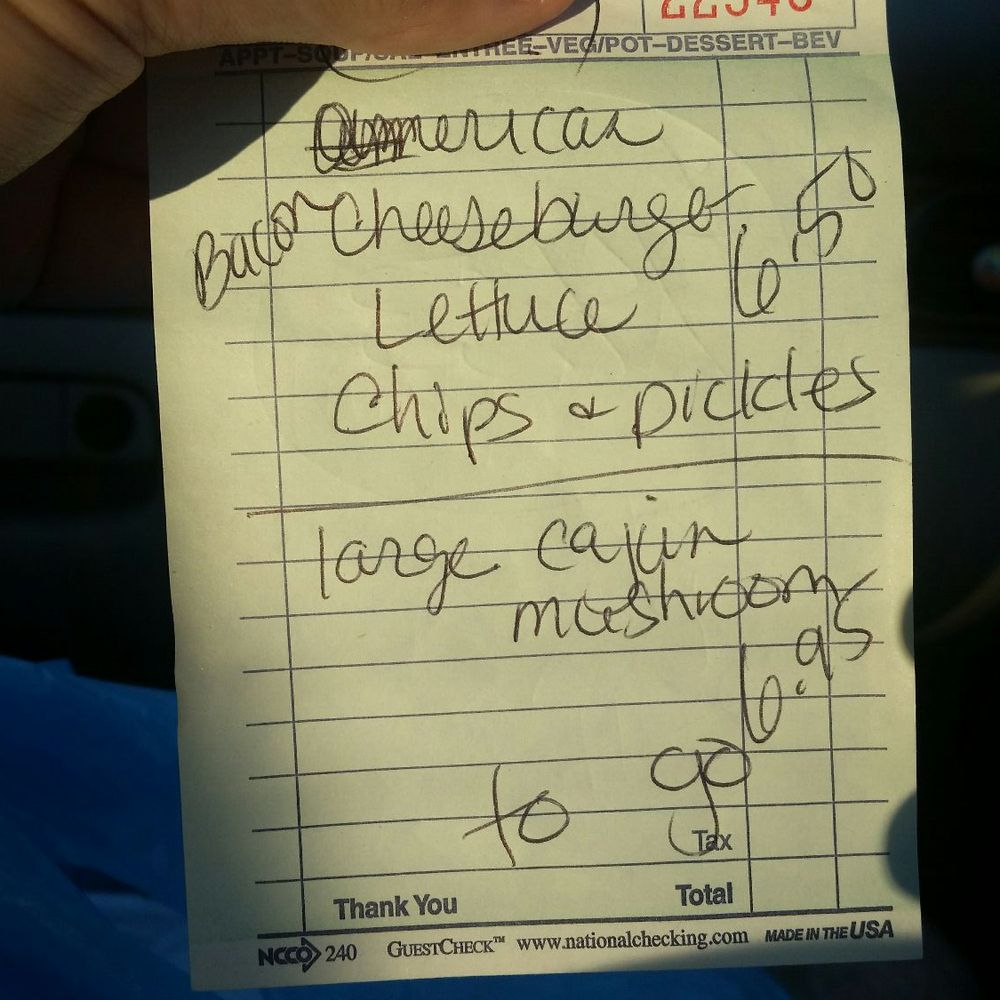 APPT-SOUP/SAL-ENTREE-VEG/POT-DESSERT-BEV
American
Bacon Cheeseburger 6.50
Lettuce
Chips & pickles
large cajun
mushrooms
6.95
to go
Tax
Thank You Total
NCCO 240 GUESTCHECK™ www.nationalchecking.com MADE IN THE USA